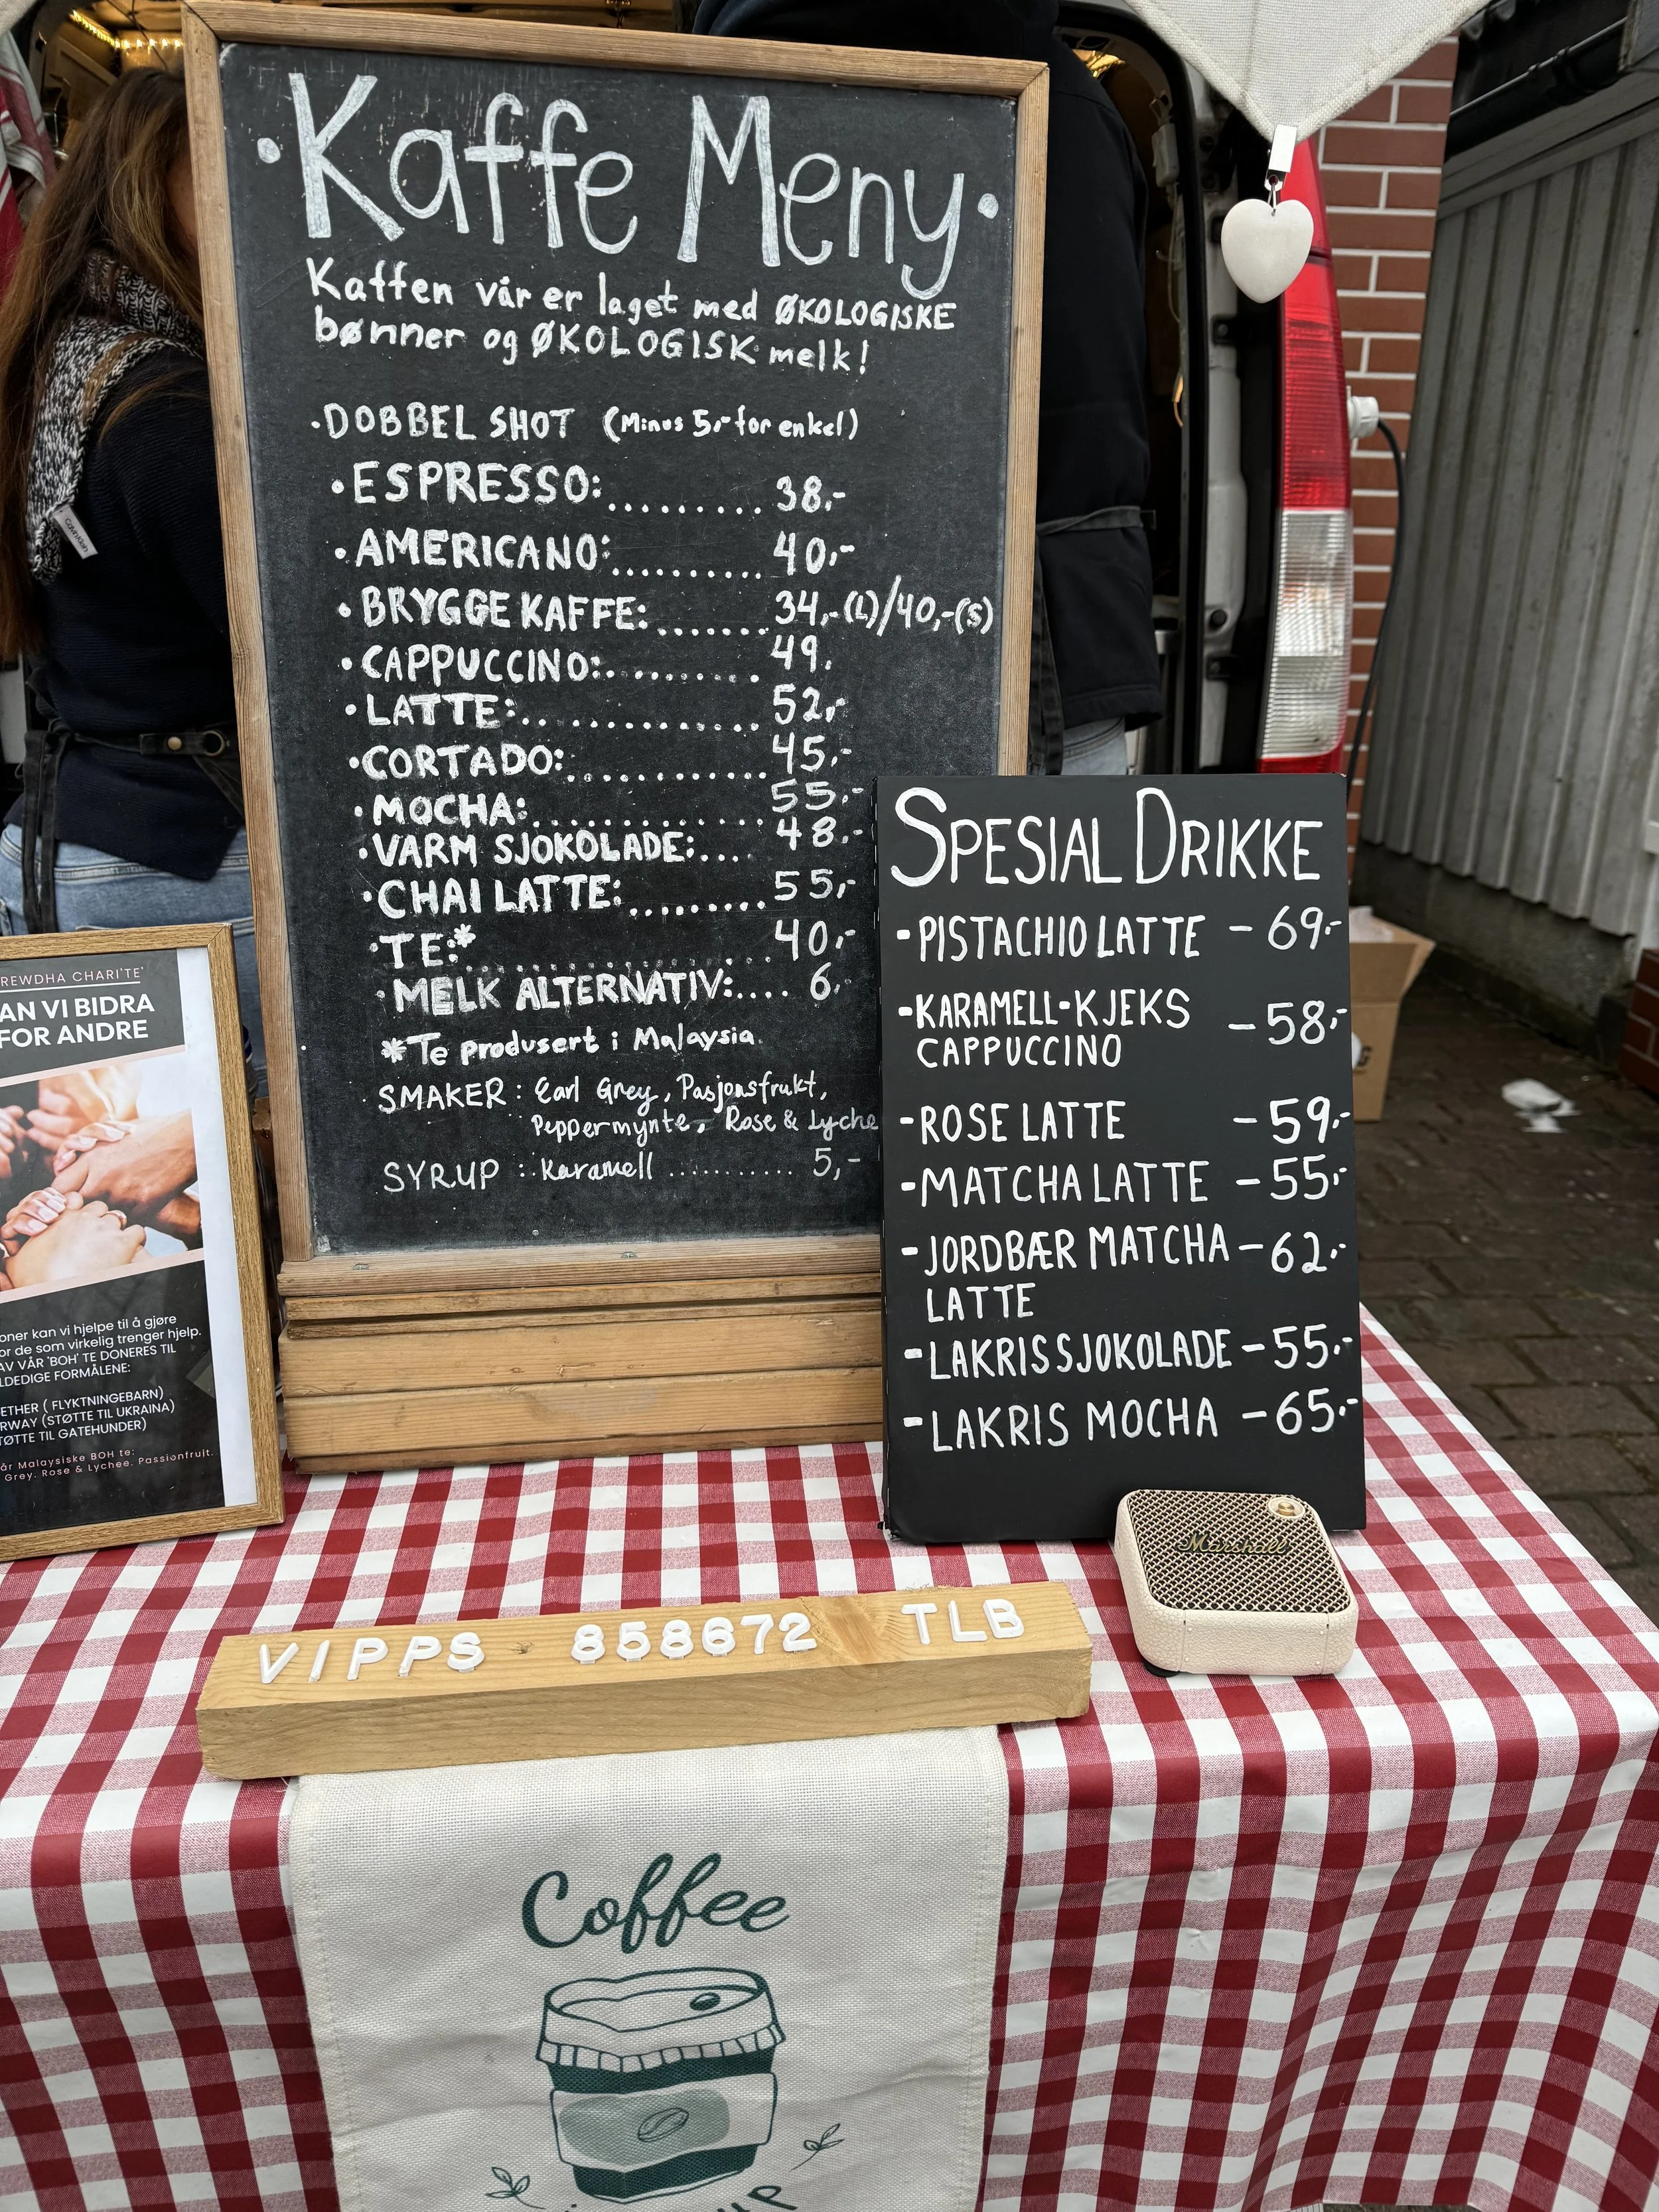 • Kaffe Meny •
Kaffen vår er laget med ØKOLOGISKE
bønner og ØKOLOGISK melk!
• DOBBEL SHOT (Minus 5,- for enkel)
• ESPRESSO: ......... 38,-
• AMERICANO: .......... 40,-
• BRYGGE KAFFE: ....... 34,-(L)/40,-(S)
• CAPPUCCINO: .......... 49,
• LATTE: .............. 52,-
• CORTADO: ............ 45,-
• MOCHA: .............. 55,-
• VARM SJOKOLADE: .... 48,-
• CHAI LATTE: ........ 55,-
• TE:* ................ 40,-
• MELK ALTERNATIV: .... 6,
*Te produsert i Malaysia.
SMAKER: Earl Grey, Pasjonsfrukt,
Peppermynte, Rose & Lyche
SYRUP : Karamell .......... 5,-
SPESIAL DRIKKE
- PISTACHIO LATTE - 69,-
- KARAMELL-KJEKS - 58,-
CAPPUCCINO
- ROSE LATTE - 59,-
- MATCHA LATTE - 55,-
- JORDBÆR MATCHA - 62,-
LATTE
- LAKRISSJOKOLADE - 55,-
- LAKRIS MOCHA - 65,-
REWDHA CHARI'TE'
AN VI BIDRA
FOR ANDRE
oner kan vi hjelpe til å gjøre
or de som virkelig trenger hjelp.
AV VÅR 'BOH' TE DONERES TIL
LDEDIGE FORMÅLENE:
ETHER ( FLYKTNINGEBARN)
RWAY (STØTTE TIL UKRAINA)
TØTTE TIL GATEHUNDER)
år Malaysiske BOH te:
Grey. Rose & Lychee. Passionfrujt.
Marshall
VIPPS 858672 TLB
Coffee
Calvin Klein